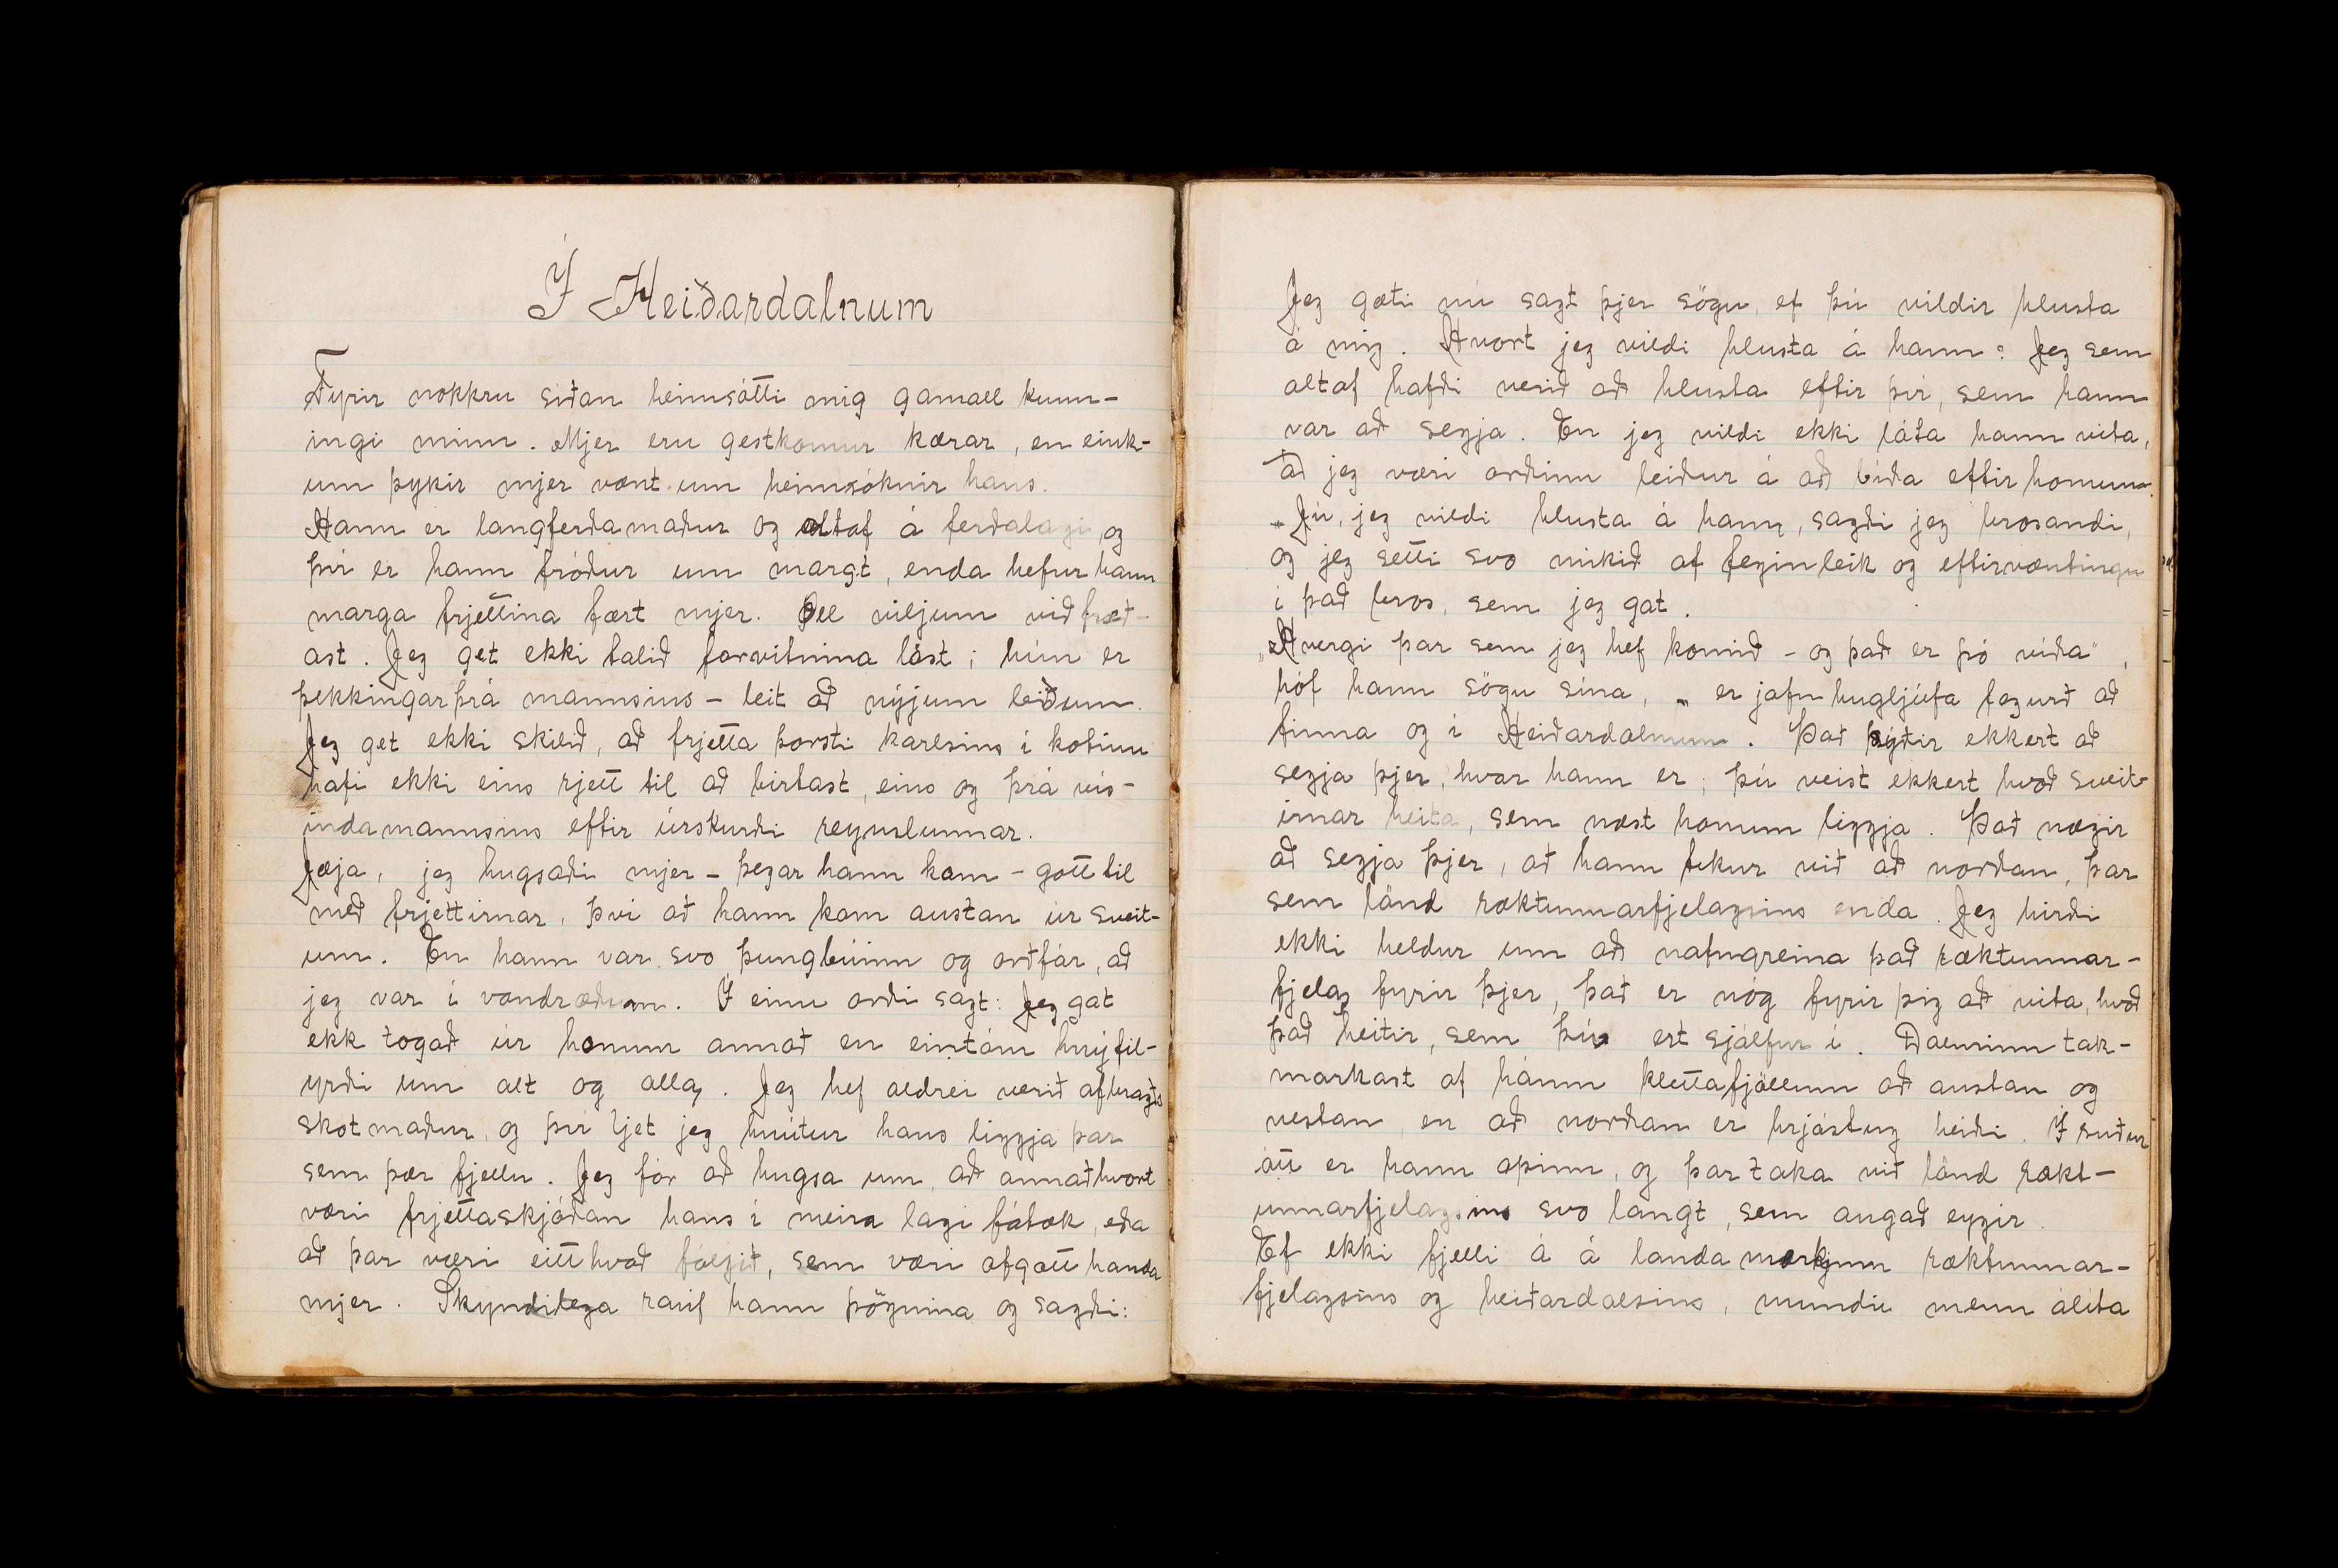 Í Heiðardalnum
Fyrir nokkru síðan heimsótti mig gamall kunn-
ingi minn. Mjer eru gestkomur kærar, en eink-
um þykir mjer vænt um heimsóknir hans.
Hann er langferðamaður og altaf á ferðalagi, og
því er hann fróður um margt, enda hefur hann
marga frjettina fært mjer. Öll viljum við fræð-
ast. Jeg get ekki talið forvitnina löst; hún er
þekkingarþrá mannsins – leit að nýjum leiðum.
Jeg get ekki skilið, að frjetta þorsti karlsins í kotinu
hafi ekki eins rjett til að birtast, eins og þrá vís-
indamannsins eftir úrskurði reynslunnar.
Jæja, jeg hugsaði mjer – þegar hann kom – gott til
með frjettirnar, því að hann kom austan úr sveit-
um. En hann var svo þungbúinn og orðfár, að
jeg var í vandræðum. Í einu orði sagt: Jeg gat
ekk togað úr honum annað en eintóm hnýfil-
yrði um alt og alla. Jeg hef aldrei verið afbragðs
skotmaður, og því ljet jeg hnútur hans liggja þar
sem þær fjellu. Jeg fór að hugsa um, að annaðhvort
væri frjettaskjóðan hans í meira lagi fátæk, eða
að þar væri eitthvað fólgið, sem væri ofgott handa
mjer. Skyndilega rauf hann þögnina og sagði:
Jeg gæti nú sagt þjer sögu, ef þú vildir hlusta
á mig. Hvort jeg vildi hlusta á hann? Jeg sem
altaf hafði verið að hlusta eftir því, sem hann
var að segja. En jeg vildi ekki láta hann vita,
að jeg væri orðinn leiður á að bíða eftir honum.
Jú, jeg vildi hlusta á hann, sagði jeg brosandi,
og jeg setti svo mikið af feginleik og eftirvæntingu
í það bros, sem jeg gat.
„Hvergi þar sem jeg hef komið – og það er þó víða",
hóf hann sögu sína, „ er jafn hugljúfa fegurð að
finna og í Heiðardalnum. Það þýðir ekkert að
segja þjer, hvar hann er; þú veist ekkert hvað sveit-
irnar heita, sem næst honum liggja. Það nægir
að segja þjer, að hann tekur við að norðan, þar
sem lönd ræktunnarfjelagsins enda. Jeg hirði
ekki heldur um að nafngreina það ræktunnar-
fjelag fyrir þjer, það er nóg fyrir þig að vita, hvað
það heitir, sem þú ert sjálfur í. Dalurinn tak-
markast af háum klettafjöllum að austan og
vestan, en að norðan er hrjóstug heiði. Í suður
átt er hann opinn, og þar taka við lönd rækt-
unnarfjelagsins svo langt, sem augað eygir.
Ef ekki fjelli á á landamærkjum ræktunnar-
fjelagsins og heiðardalsins, mundu menn álíta